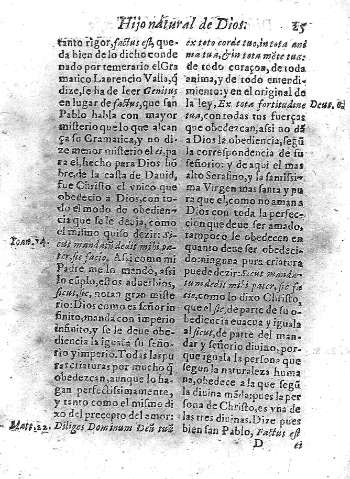 Hijo natural de Dios. 25
tanto rigor, factus est, que-
da bien de lo dicho conde
nado por temerario el Gra
matico Laurencio Valla, q̃
dize, se ha de leer Genitus
en lugar de factus, que san
Pablo habla con mayor
misterio que lo que alcan
ça so Gramatica, y no di
ze menos misterio el ei, pa
ra el, hecho para Dios hõ
bre, de la casta de Dauid,
fue Christo el vnico que
obedecio a Dios, con to-
do el modo de obedien-
cia que se le deuia, como
el mismo quiso dezir: Si-
Ioan. 14. cut mandatũ dedit mihi pa-
ter, sic facio. Assi como mi
Padre me lo mandò, assi
lo cũplo, estos aduerbios,
sicut, sic, notan gran miste
rio: Dios como es señor in
finito, manda con imperio
infinito, y se le deue obe-
diencia la iguala su seño-
rio y imperio. Todas las pu
ras criaturas por mucho q̃
obedezcan, aunque lo ha-
gan perfectissimamente,
y tanto como el mismo di
xo del precepto del amor:
Matt. 22. Diliges Dominum Deũ tuũ
ex toto corde tuo, in tota ani
ma tua, & in tota mẽte tua: de
de todo coraçon, de toda
anima, y de todo entendi-
miento: y en el original de
la ley, Ex tota fortitudine Deut. 6.
tua, con todas tus fuerças
que obedezcan, assi no dã
a Dios la obediencia, segũ
la correspondencia de su
señorio: y de aqui el mas
alto Serafino, y la santissi-
ma Virgen mas santa y pu
ra que el, como no aman a
Dios con toda la perfec-
cion que deue ser amado,
tampoco le obedecen en
quanto deue ser obedeci-
do: ninguna pura criatura
puede dezir: Sicut manda-
tum dedit mihi pater, sic fa-
cio, como lo dixo Christo,
que el sic, de parte de su o-
bediencia euacua y iguala
al sicut, de parte del man-
dar y señorio diuino, por-
que iguala la persona que
segun la naturaleza huma
na, obedece a la que segũ
la diuina mãda, pues la per
sona de Christo, es vna de
las tres diuinas. Dize pues
bien san Pablo, Factus est
D ei